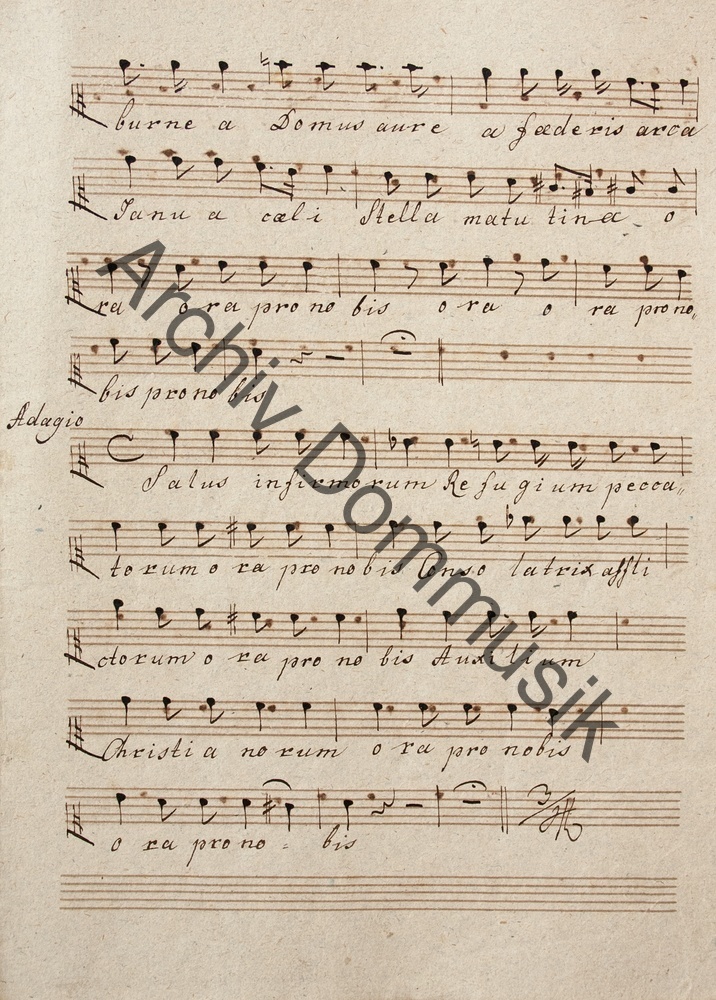 burne a Domus aure a fæderis arca
Ianu a cæli Stella matu tina o
ra o ra pro no bis o ra o ra pro no„
bis pro no bis
Adagio
Salus infirmorum Re fu gi um pecca„
to rum o ra pro no bis Conso latrix affli
ctorum o ra pro no bis Auxilium
Christi a no rum o ra pro nobis
o ra pro no = bis
Archiv Dommusik